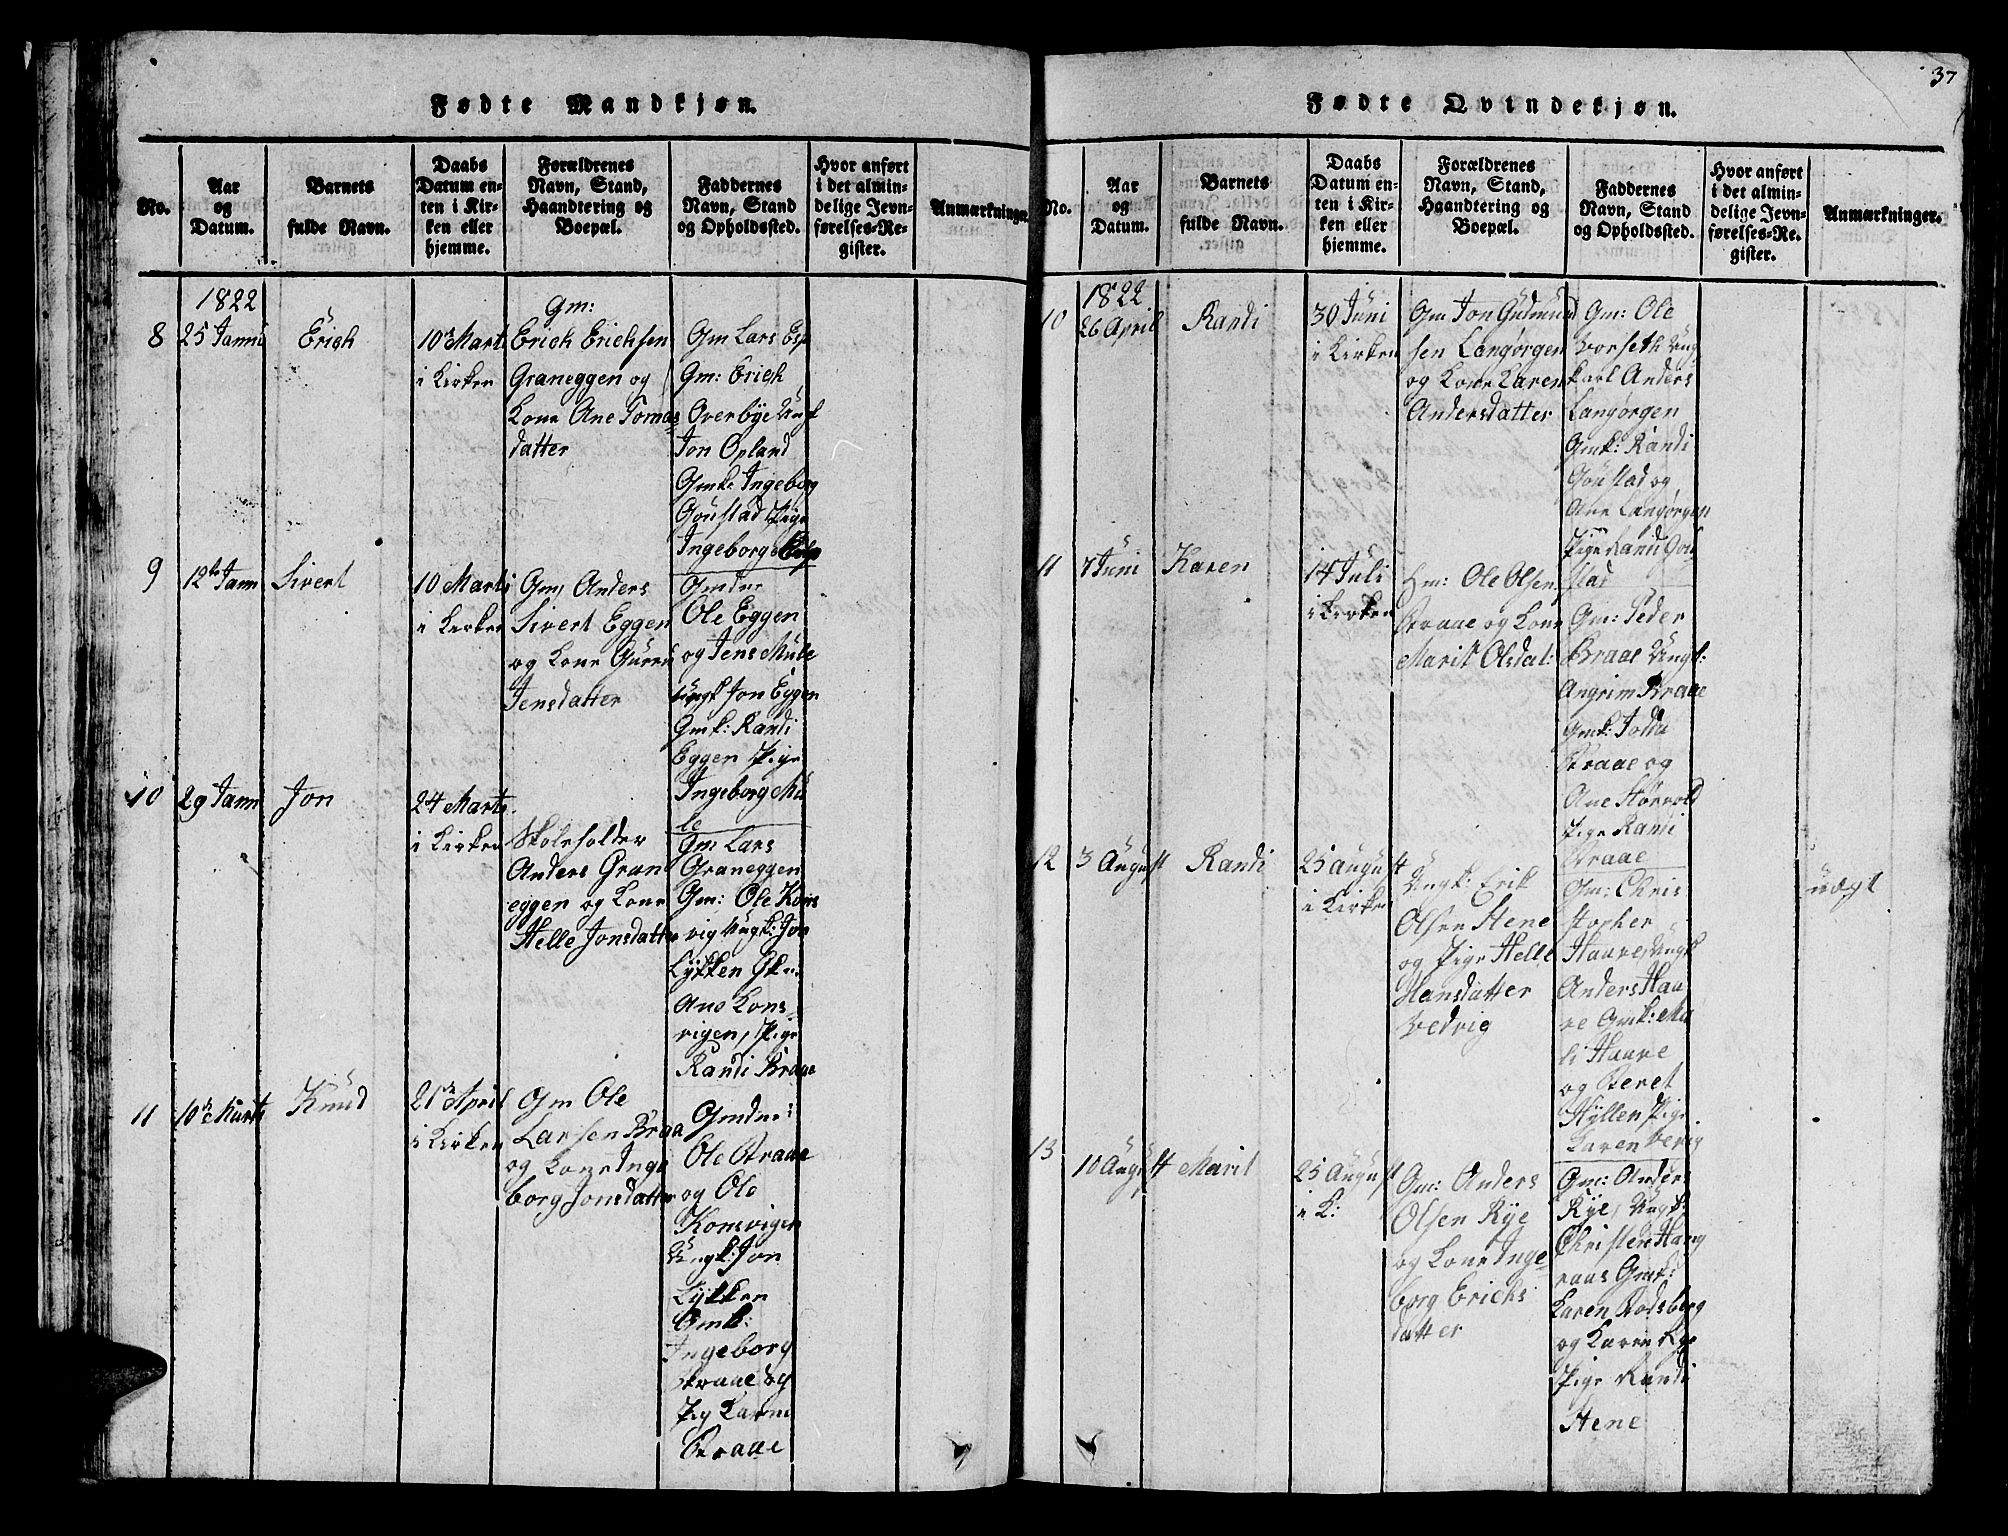 37
Fødte Mandkjøn.
No.
Aar
og
Datum.
Barnets
fulde Navn.
Daabs
Datum en-
ten i Kir-
ken eller
hjemme.
Forældrenes
Navn, Stand,
Haandtering og
Boepæl.
Faddernes
Navn, Stand
og Opholdssted.
Hvor anført
i det almin-
delige Jevn-
førelses-Re-
gister.
Anmærkninger.
1822
8
25 Janu
Erich
10 Mart
i Kirken
Gm:
Erich Erichsen
Graneggen og
Kone Ane Tomas
datter
Gm Lars Esp
Gm: Erich
Overbye Ungk
Jon Opland
Gmk Ingeborg
Gønstad Pige
Ingeborg
9
12te Jann
Sivert
10 Marti
i Kirken
Gm, Anders
Sivert Eggen
og Kone Guru
Jensdatter
Gmdne
Ole Eggen
og Jens Mule
Ungk Jon Eggen
Gmk: Randi
Eggen Pige
Ingeborg Mu
le
10
29 Jann
Jon
24 Marts
i Kirken
Skoleholder
Anders Gran
eggen og Kone
Helle Jonsdatter
Gm Lars
Graneggen
Gm: Ole Kons
vig Ungk: Jon
Lykken
Ane Kons
vigen, Pige
Randi Braae
11
10 Marts
Knud
21 April
i Kirken
Gm Ole
Larsen Braa
og Kone Inge
borg Jonsdatter
Gmdne:
Ole Braae
og Ole
Konsvigen
Ungk: Jon
Lykken
Gmk:
Ingeborg
Braae og
Pig Karen
Braae
Fødte Qvindekjøn.
No.
Aar
og
Datum.
Barnets
fulde Navn.
Daabs
Datum en-
ten i Kir-
ken eller
hjemme.
Forældrenes
Navn, Stand,
Haandtering og
Boepæl.
Faddernes
Navn, Stand
og Opholdssted.
Hvor anført
i det almin-
delige Jevn-
førelses-Re-
gister.
Anmærkninger.
1822
10
26 April
Randi
30 Juni
i Kirken
Gm Jon Gudmund
sen Langørgen
og Kone Karen
Andersdatter
Gm: Ole
Vorseth Ung
karl Anders
Langørgen
Gmk: Randi
Gønstad og
Ane Langørgen
Pige Randi Gøn
stad
11
7 Juni
Karen
14 Juli
i Kirken
Hm: Ole Olsen
Braae og Kone
Marit Olsdat:
Gm: Peder
Braae Ungk:
Angrim Braae
Gmk:
Braae og
Ane Størvold
Pige Randi
Braae
12
3 August
Randi
25 August
i Kirken
Ungk: Erik
Olsen Stene
og Pige Helle
Hansdatter
Vedvig
Gm: Chris
stopher
Haave, Ungk
Anders Haa
ve Gmk: Ma
li Haave
og Beret
Hyllen Pige
Karen
uægt
13
10 August
Marit
25 August
i K:
Gm: Anders
Olsen Rye
og Kone Inge
borg Erichs
datter
Gm: Anders
Rye, Ungk:
Christen Haug
raas Gmk:
Karen Rodsberg
og Karen Rye
Pige Randi
Stene